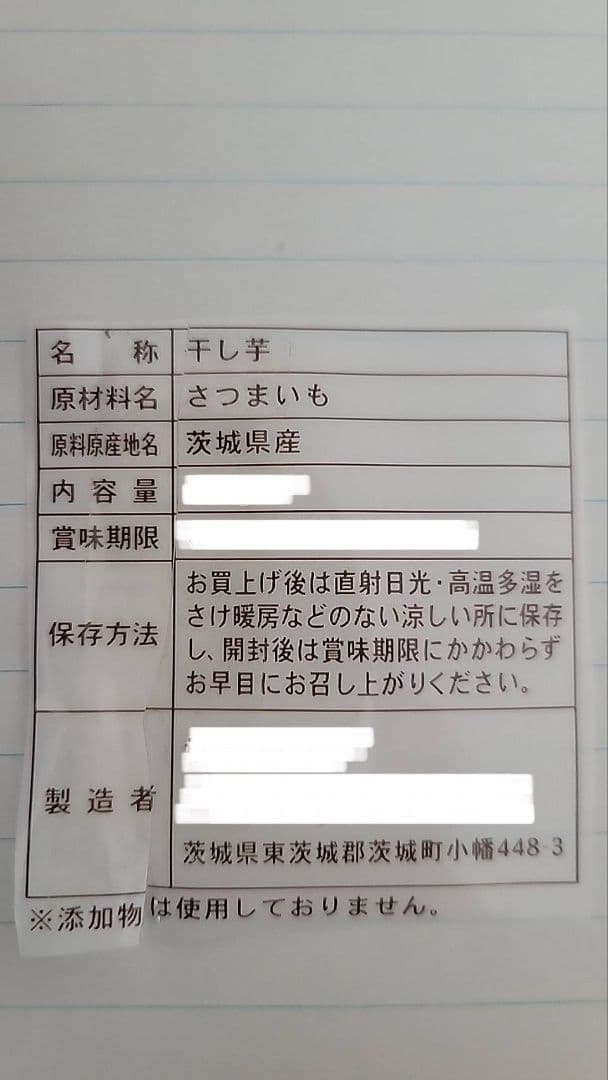 名称 干し芋
原材料名 さつまいも
原料原産地名 茨城県産
内容量
賞味期限
保存方法 お買上げ後は直射日光・高温多湿を
さけ暖房などのない涼しい所に保存
し、開封後は賞味期限にかかわらず
お早目にお召し上がりください。
製造者
茨城県東茨城郡茨城町小幡448-3
※添加物は使用しておりません。